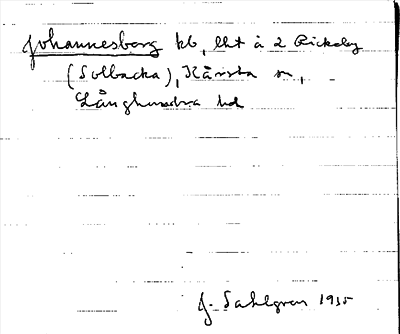 Johannesborg kb, lht å 2 Rickeby
(Solbacka), Kårsta sn,
Långhundra hd
J. Sahlgren 1935